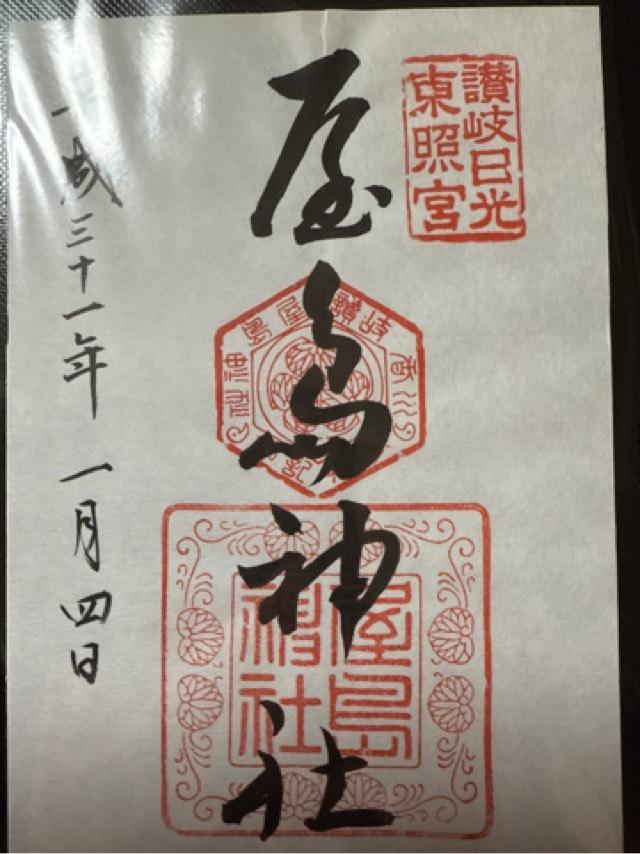 讃岐日光
東照宮
屋島神社
屋島
神社
成三十一年 一月四日